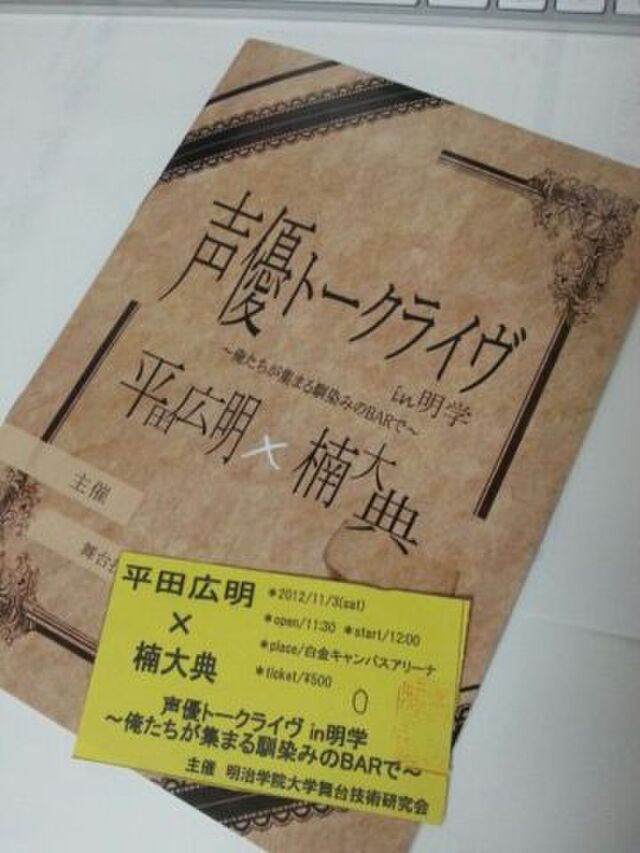 声優トークライヴ
in明学
〜俺たちが集まる馴染みのBARで〜
平田広明×楠大典
主催
舞台
平田広明
×
楠大典
*2012/11/3(sat)
*open/11:30 *start/12:00
*place/白金キャンパスアリーナ
*ticket/¥500
0
声優トークライヴ in明学
〜俺たちが集まる馴染みのBARで〜
主催 明治学院大学舞台技術研究会